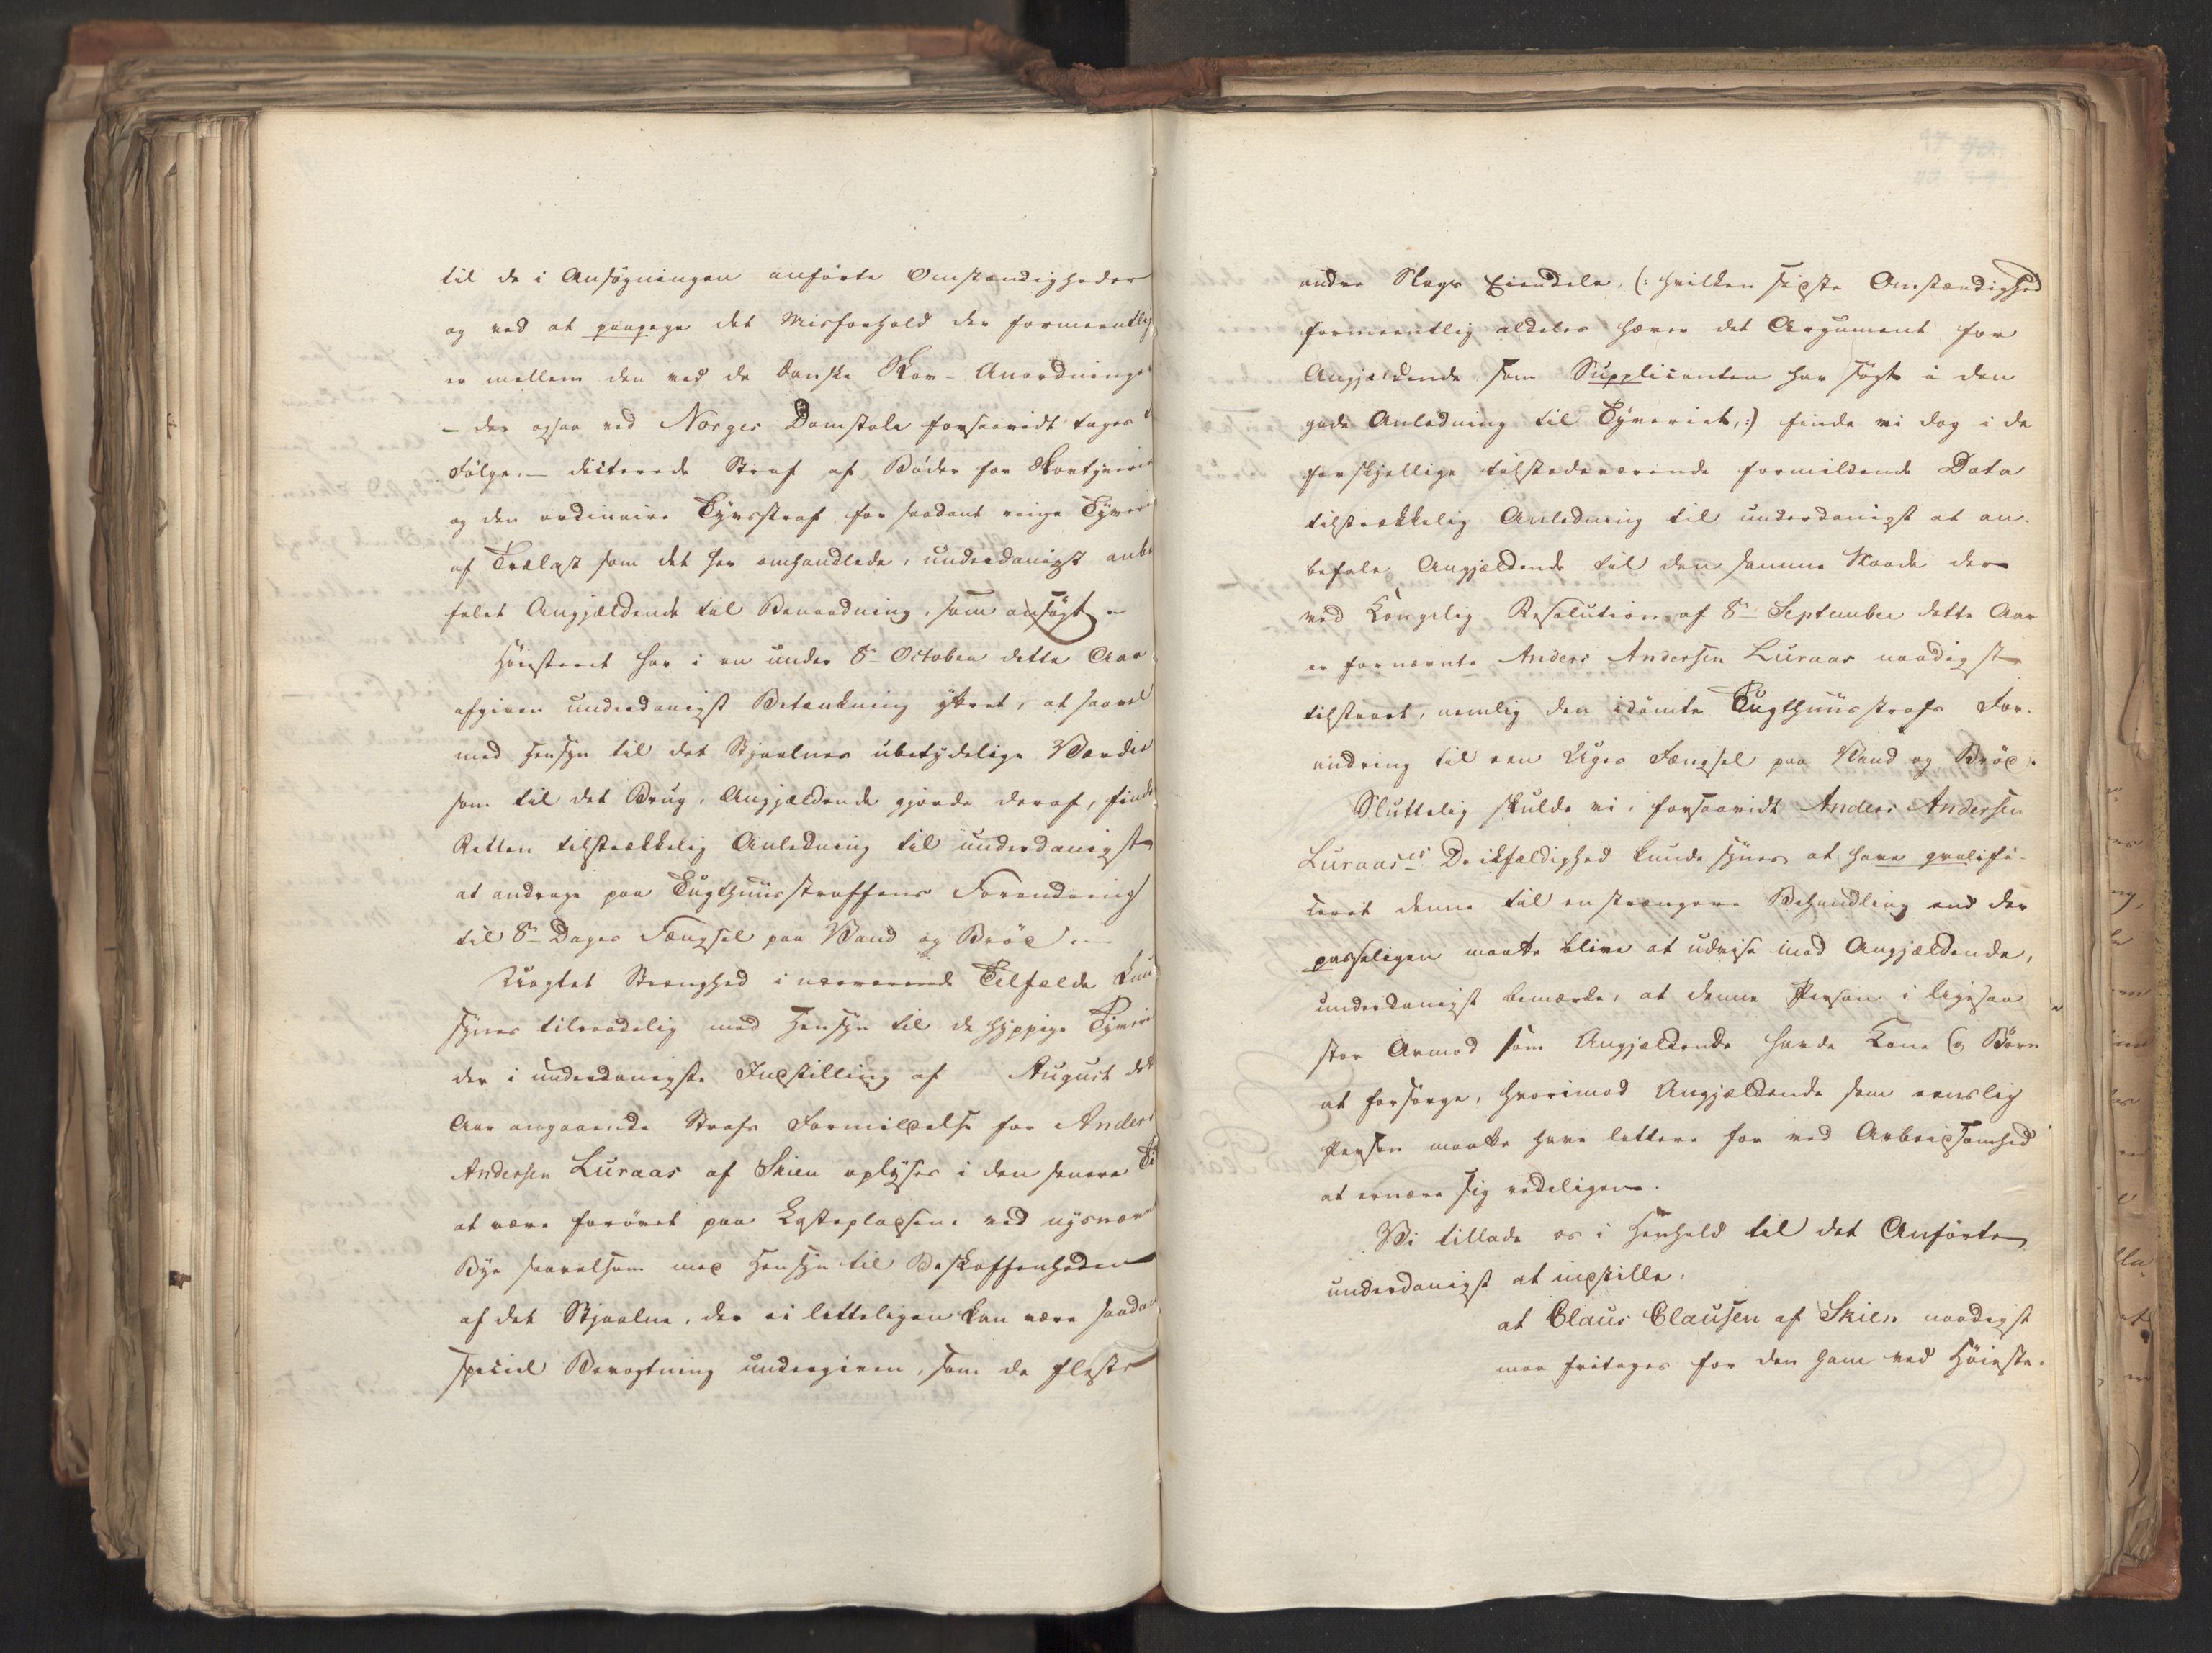 til de i Ansøgningen anførte Omstændigheder
og ved at paapege det Misforhold der formeentlig
er mellem den ved de danske Skov-Anordninger
– der ogsaa ved Norges Domstole forsaavidt tages t
Følge, – dicterede Straf af Bøder for Skovtyverie
og den ordinaire Tyvsstraf for saadant ringe Tyverie
af Trælast som det her omhandlede, underdanigst anbe
falet Angjældende til Benaadning, som ansøgt. –
Høiesteret har i en under 8de October dette Aar
afgiven underdanigst Betænkning yttret, at saavel
med Hensyn til det Stjaalnes ubetydelige Værdie
som til det Brug, Angjældende gjorde deraf, finde
Retten tilstrækkelig Anledning til underdanigst
at andrage paa Tugthuusstraffens Forandring
til 8te Dages Fængsel paa Vand og Brød. –
Uagtet Strenghed i nærværende Tilfælde kun
synes tilraadelig med Hensyn til de hyppige Tyverie
der i underdanigste Indstilling af August dette
Aar angaaende Strafs Formildelse for Anders
Andersen Luraas af Skien oplyses i den senere Ti
at være forøvet paa Lastepladsene ved nysnævn
Bye saavelsom med Hensyn til Beskaffenheden
af det Stjaalne, der ei letteligen kan være saadan
speciel Bevogtning undergiven, som de fleste
andre Slags Eiendele, (: hvilken sidste Omstændighed
formeentlig aldeles hæver det Argument for
Angjældende som Supplicanten har søgt i den
gode Anledning til Tyveriet, :) finde vi dog i de
forskjellige tilstedeværende formildende Data
tilstrækkelig Anledning til underdanigst at an-
befale Angjældende til den samme Naade der
ved Kongelig Resolution af 8de September dette Aar
er fornævnte Anders Andersen Luraas naadigst
tilstaaet, nemlig den idømte Tugthuusstrafs For-
andring til een Uges Fængsel paa Vand og Brød.
Sluttelig skulde vi, forsaavidt Anders Andersen
Luraases Drikfældighed kunde synes at have qvalifi-
ceret denne til en strængere Behandling end der
passeligen maatte blive at udvise mod Angjældende,
underdanigst bemærke, at denne Person i ligesaa
stor Armod som Angjældende havde Kone og Børn
at forsørge, hvorimod Angjældende som eenslig
Person maatte have lettere for ved Arbeidsomhed
at ernære sig redeligen.
Vi tillade os i Henhold til det Anførte
underdanigst at indstille,
at Claus Clausen af Skien naadigst
maa fritages for den ham ved Høieste-